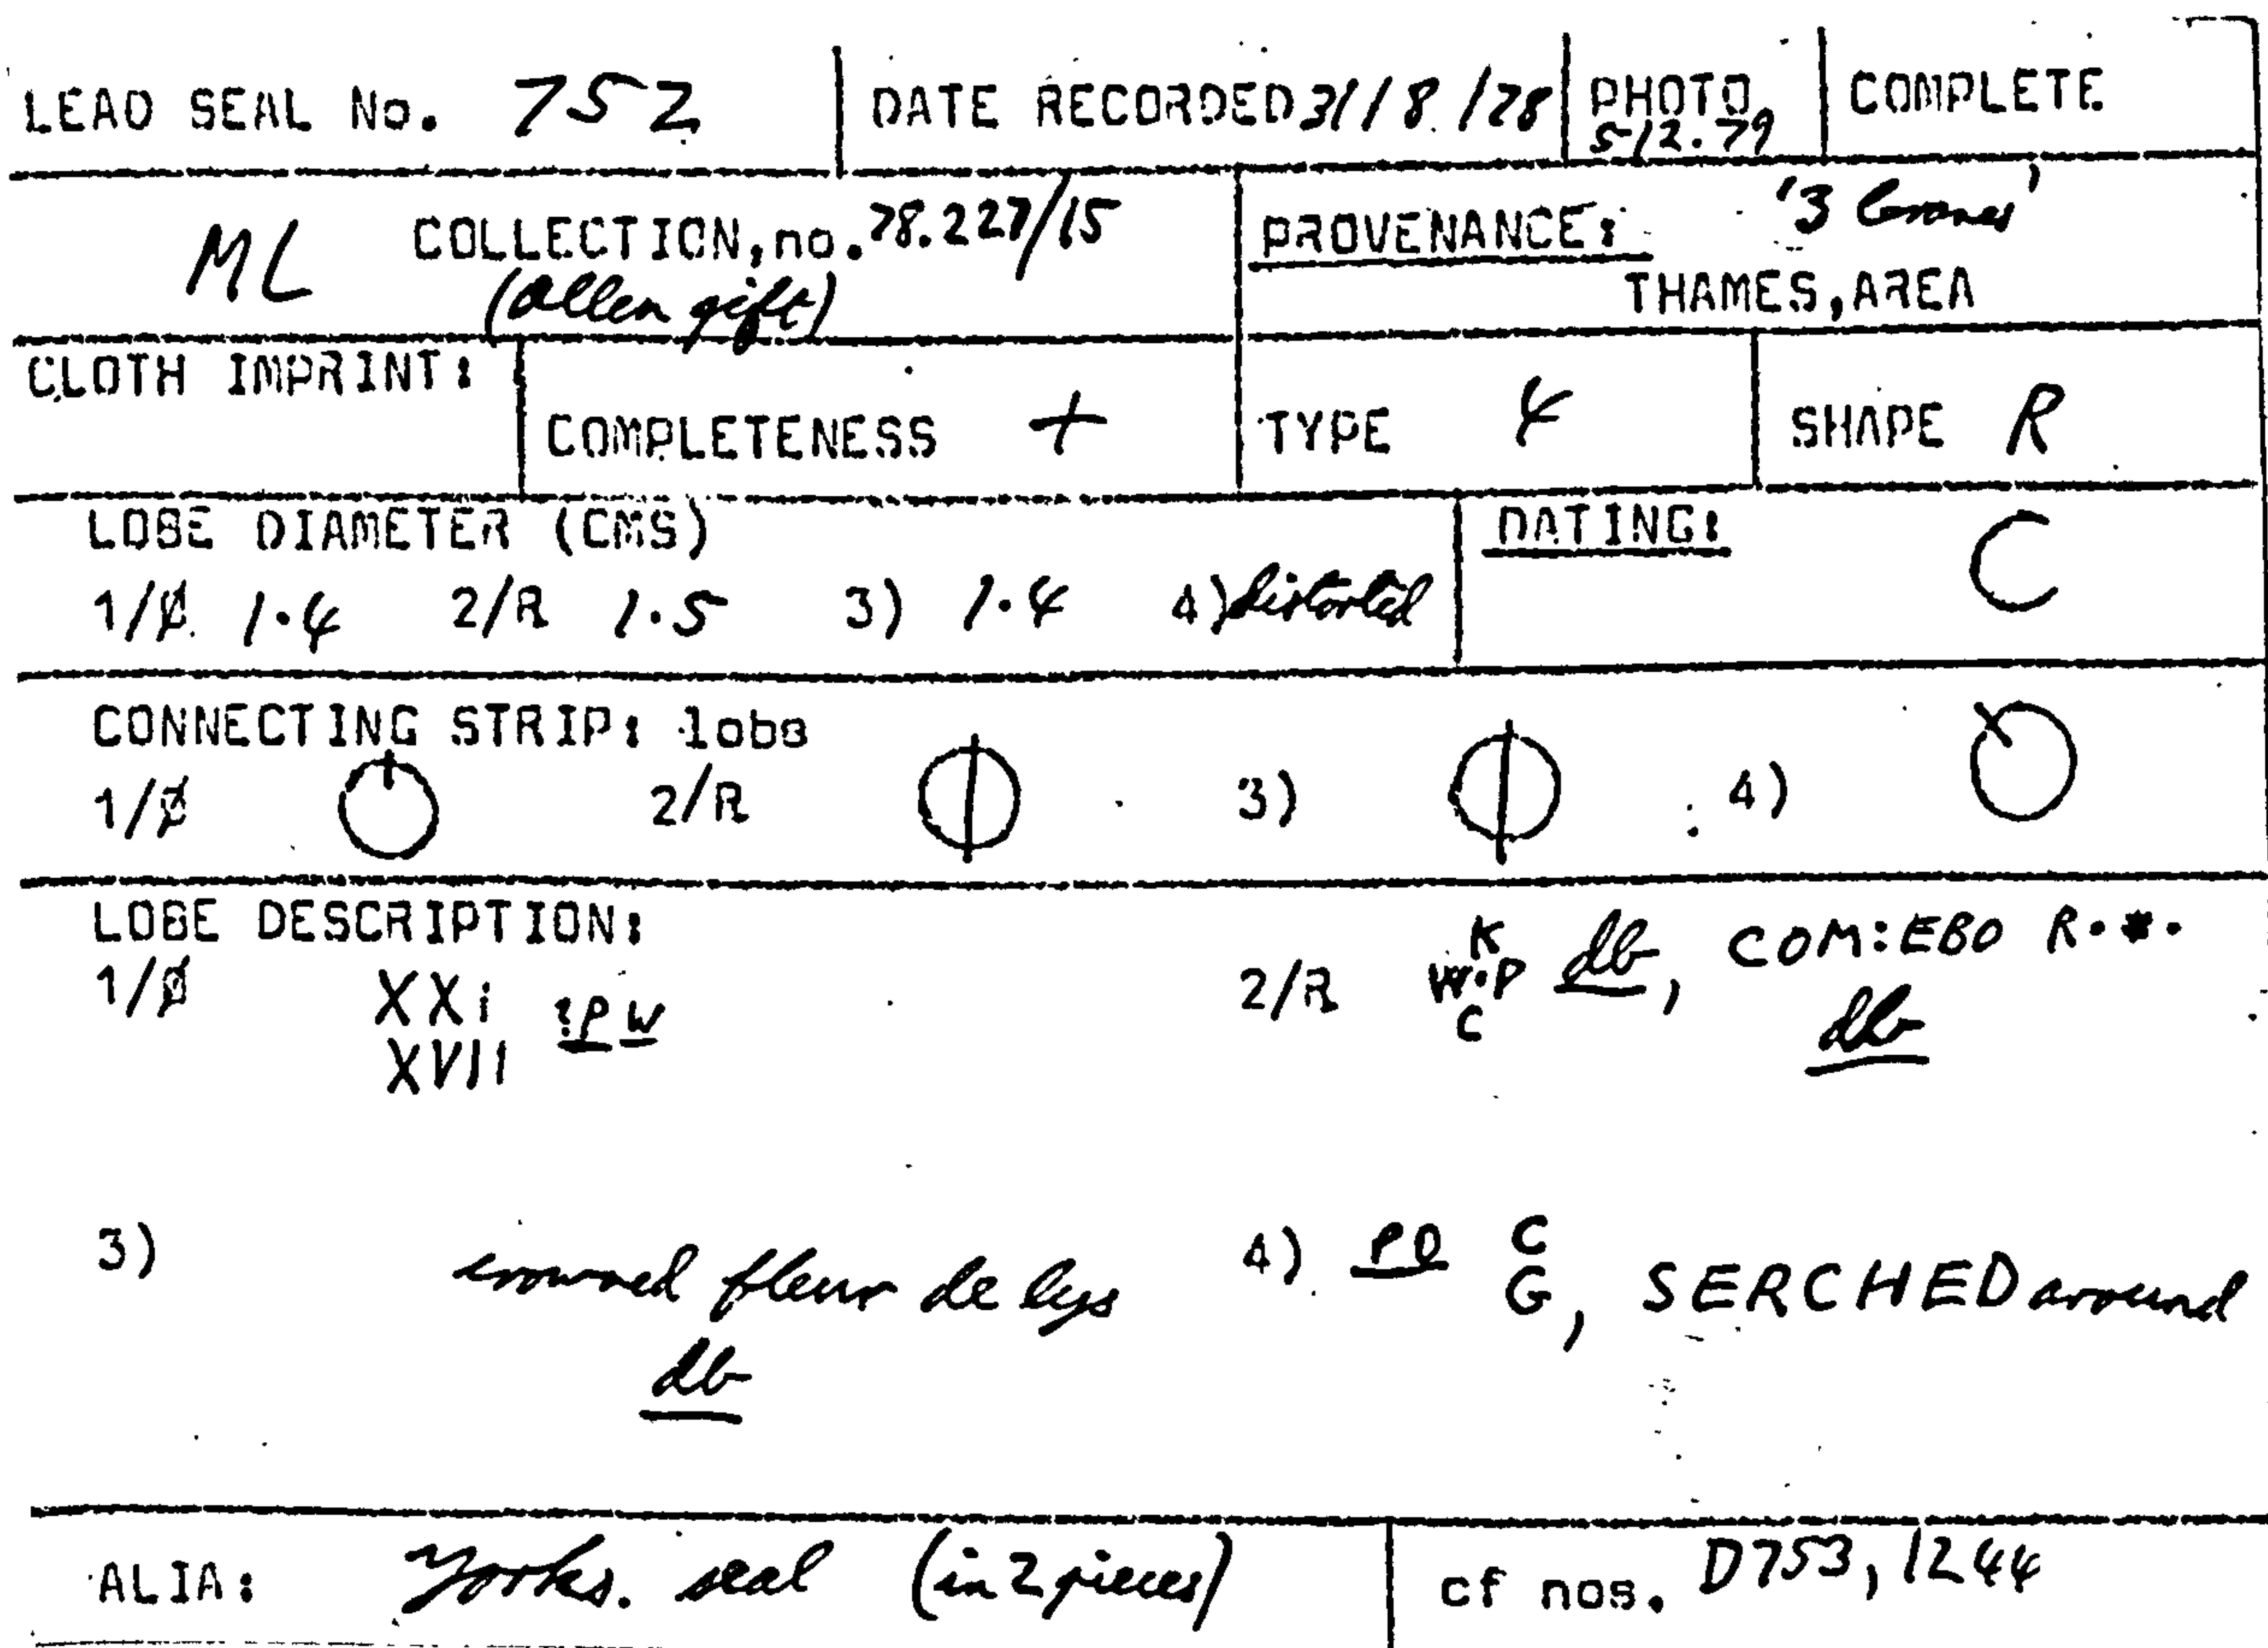 LEAD SEAL No. 752 DATE RECORDED 31/8/78 PHOTO 5/2.79 COMPLETE
ML COLLECTION, no. 78.227/15 PROVENANCE: '3 Cranes'
(Allen gift) THAMES, AREA
CLOTH IMPRINT:
COMPLETENESS + TYPE 4 SHAPE R
LOBE DIAMETER (CMS) DATING: C
1/Ø 1.4 2/R 1.5 3) 1.4 4) distorted
CONNECTING STRIP: lobe
1/Ø 2/R 3) 4)
LOBE DESCRIPTION:
1/Ø XXi :PW 2/R K W.P C db, COM:EBO R.*.
XVII db
3) crowned fleur de lys 4) PO C G, SERCHED around
db
ALIA: Yorks. seal (in 2 pieces) cf nos. D753, 1244